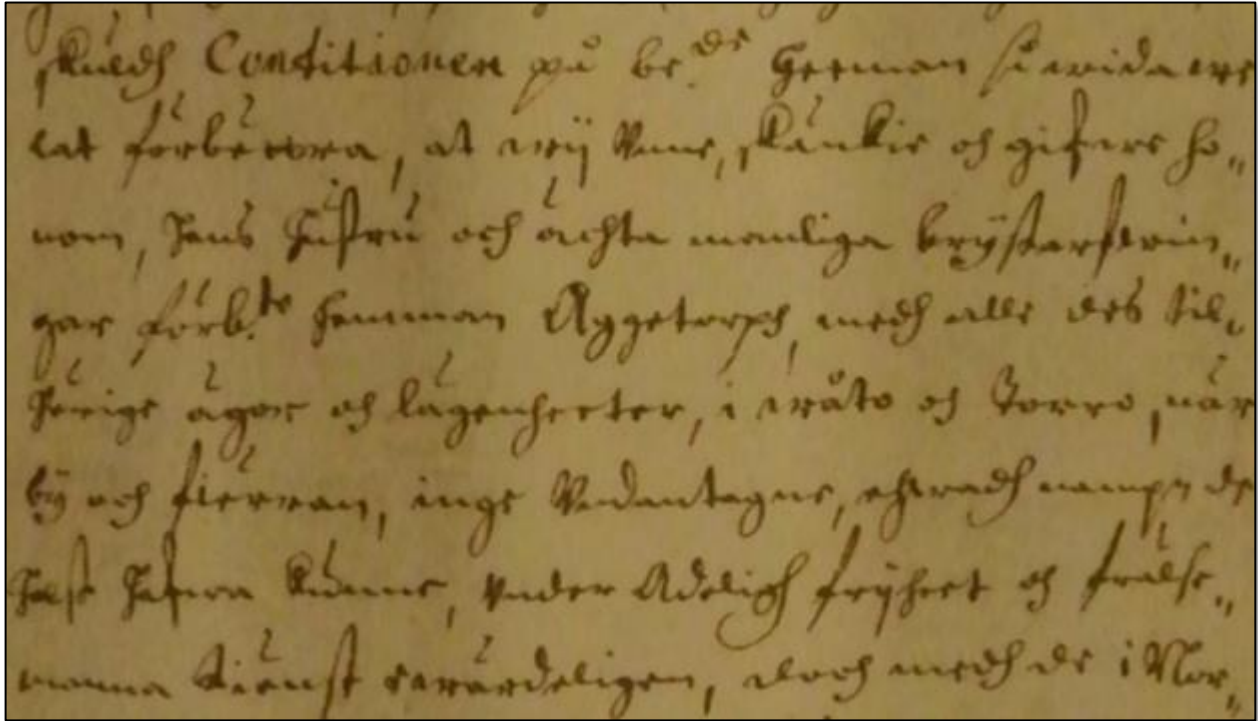 skuldh Conditionen på be.de Heeman så wida wele
lat förbättra, at wij Vnne, skänkie och gifwe ho„
nom, hans hustru och ächta manliga bryst arfwin„
gar förb.te hemman Aggetorph, medh alle des til„
hörige ägor och lägenheeter, i wåto och Torro, när
by och fierran, inge Vndantagne, ehwadh nampn de
helst hafwa kunne, vnder Adeligh frijheet och frälse„
manna tienst ewärdeligen, doch medh de i Nor„